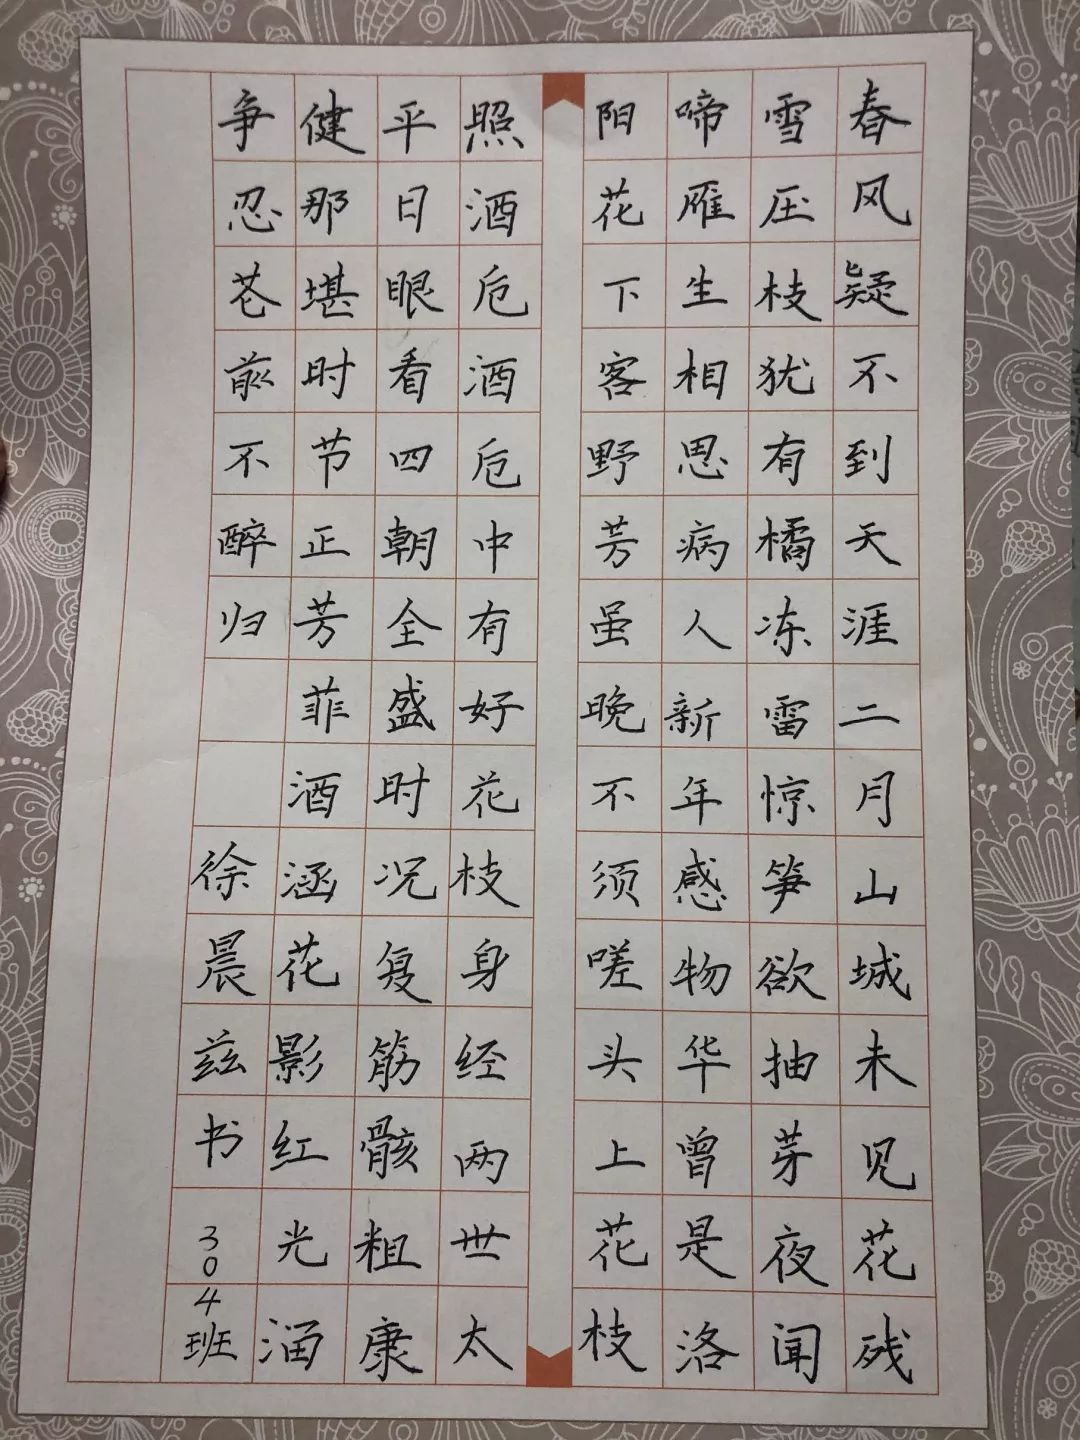 春风疑不到天涯二月山城未见花残
雪压枝犹有橘冻雷惊笋欲抽芽夜闻
啼雁生相思病人新年感物华曾是洛
阳花下客野芳虽晚不须嗟头上花枝
照酒卮酒卮中有好花枝身经两世太
平日眼看四朝全盛时况复筋骸粗康
健那堪时节正芳菲酒涵花影红光
争忍花前不醉归
徐晨兹书
304班